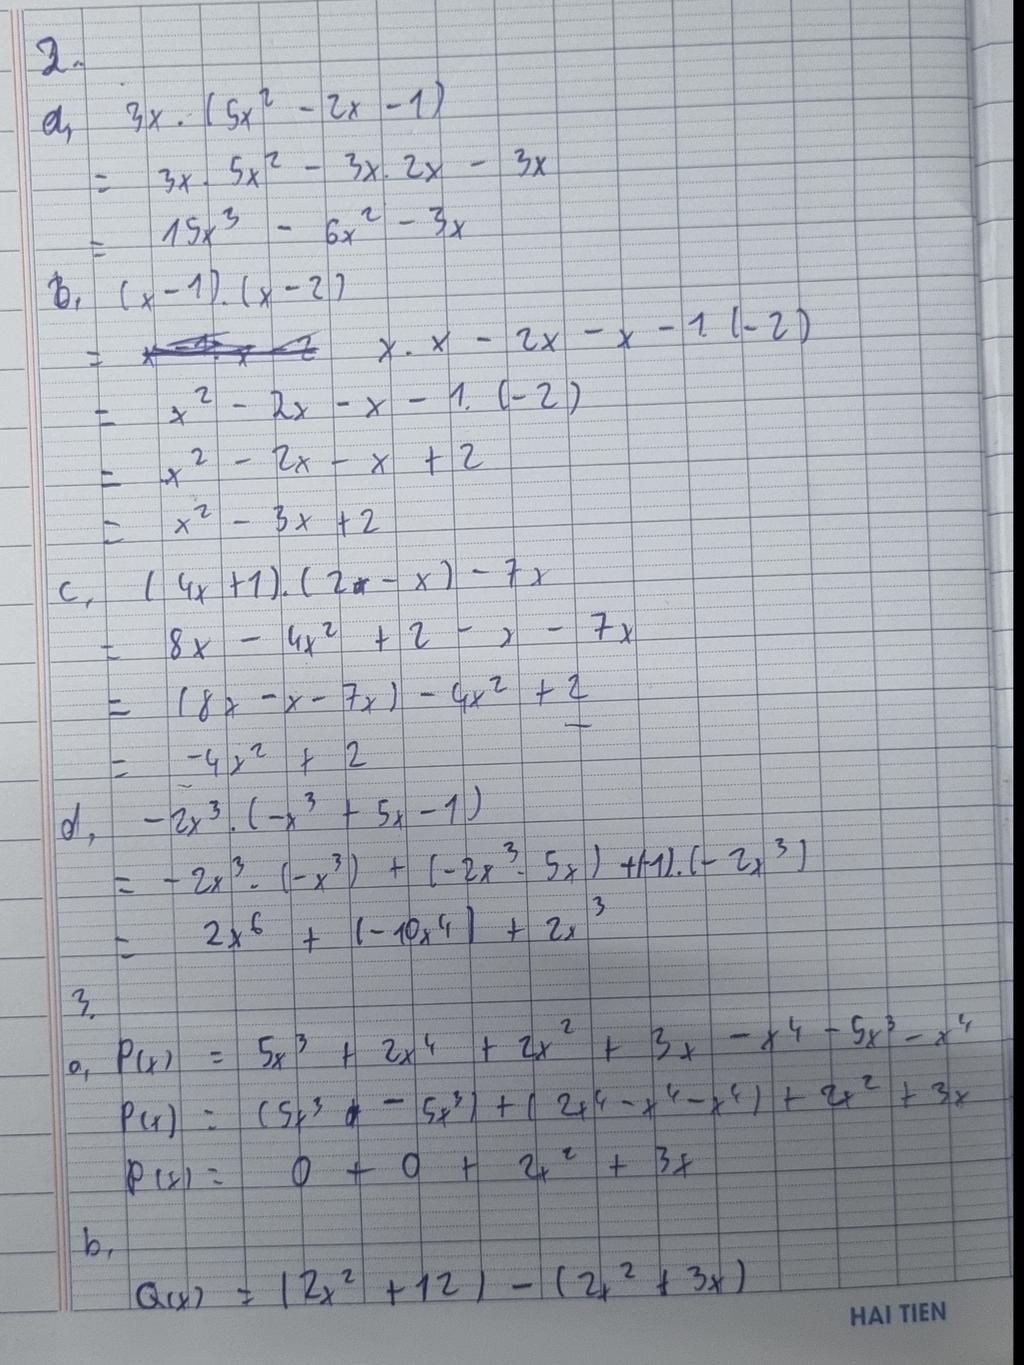 2.
a, 3x . (5x² - 2x - 1)
= 3x . 5x² - 3x . 2x - 3x
= 15x³ - 6x² - 3x
b, (x - 1) . (x - 2)
= x . x - 2x - x - 1 (-2)
= x² - 2x - x - 1 . (-2)
= x² - 2x - x + 2
= x² - 3x + 2
c, (4x + 1) . (2 - x) - 7x
= 8x - 4x² + 2 - x - 7x
= (8x - x - 7x) - 4x² + 2
= -4x² + 2
d, -2x³ . (-x³ + 5x - 1)
= -2x³ . (-x³) + (-2x³ . 5x) + (-1) . (-2x³)
= 2x⁶ + (-10x⁴) + 2x³
3.
a, P(x) = 5x³ + 2x⁴ + 2x² + 3x - x⁴ - 5x³ - x⁴
P(x) = (5x³ - 5x³) + (2x⁴ - x⁴ - x⁴) + 2x² + 3x
P(x) = 0 + 0 + 2x² + 3x
b,
Q(x) = (2x² + 12) - (2x² + 3x)
HAI TIEN